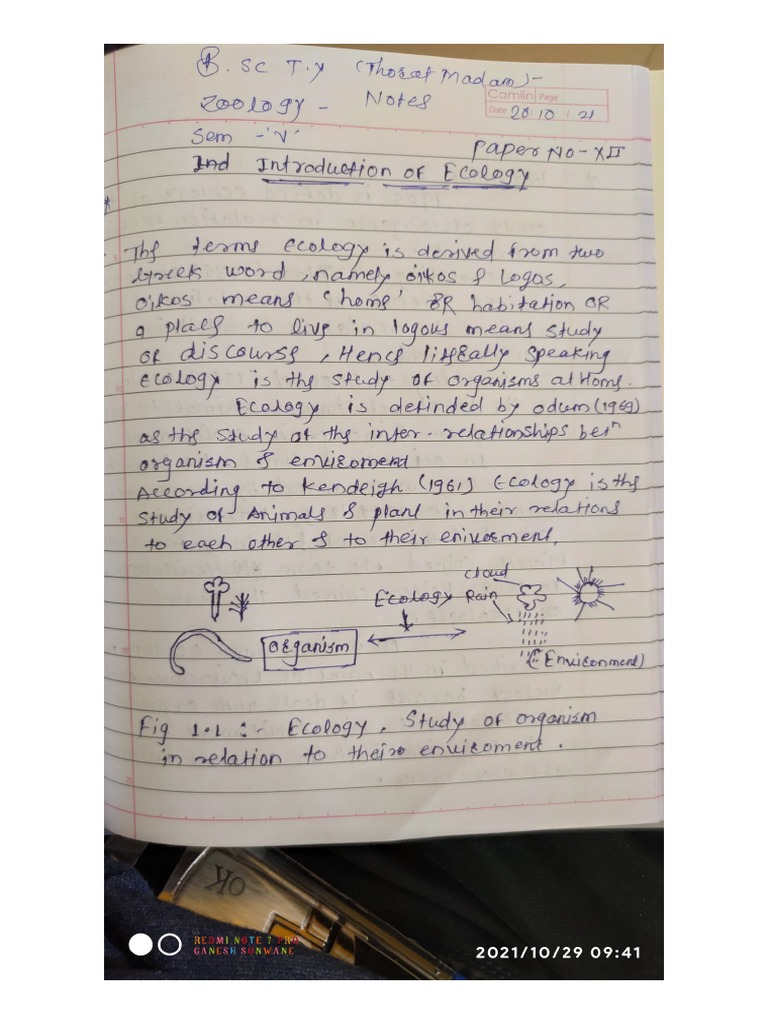 B.SC T.Y (Thorat Madam)-
Zoology - Notes
Camlin Page
Date 20 10 21
Sem - 'V'
Paper No-XII
Ind Introduction of Ecology
The terms ecology is derived from two
Greek word, namely oikos & logos,
oikos means 'home' OR habitation OR
a place to live in logous means study
OF discourse, Hence litterally speaking
ecology is the study of organisms at Home.
Ecology is definded by odum (1969)
as the study of the inter-relationships betn
organism & enviroment
According to Kendeigh (1961) Ecology is the
study of Animals & plant in their relations
to each other & to their eniverment,
cloud
Ecology Rain
Organism
(Environment)
Fig 1.1 :- Ecology, Study of organism
in relation to their enviroment.
OK
REDMI NOTE 7 PRO
GANESH SONWANE
2021/10/29 09:41